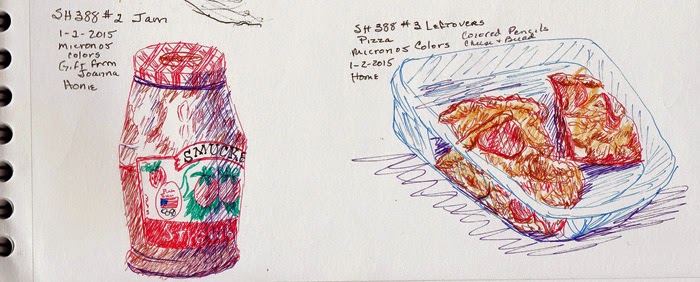 SH 388 #2 Jam
1-2-2015
Micron 05
Colors
Gift from
Joanna
Home
SMUCKE
SH 388 #3 Leftovers
Pizza
Micron 05 Colors
1-2-2015
Home
Colored Pencils
Cheese & Bread